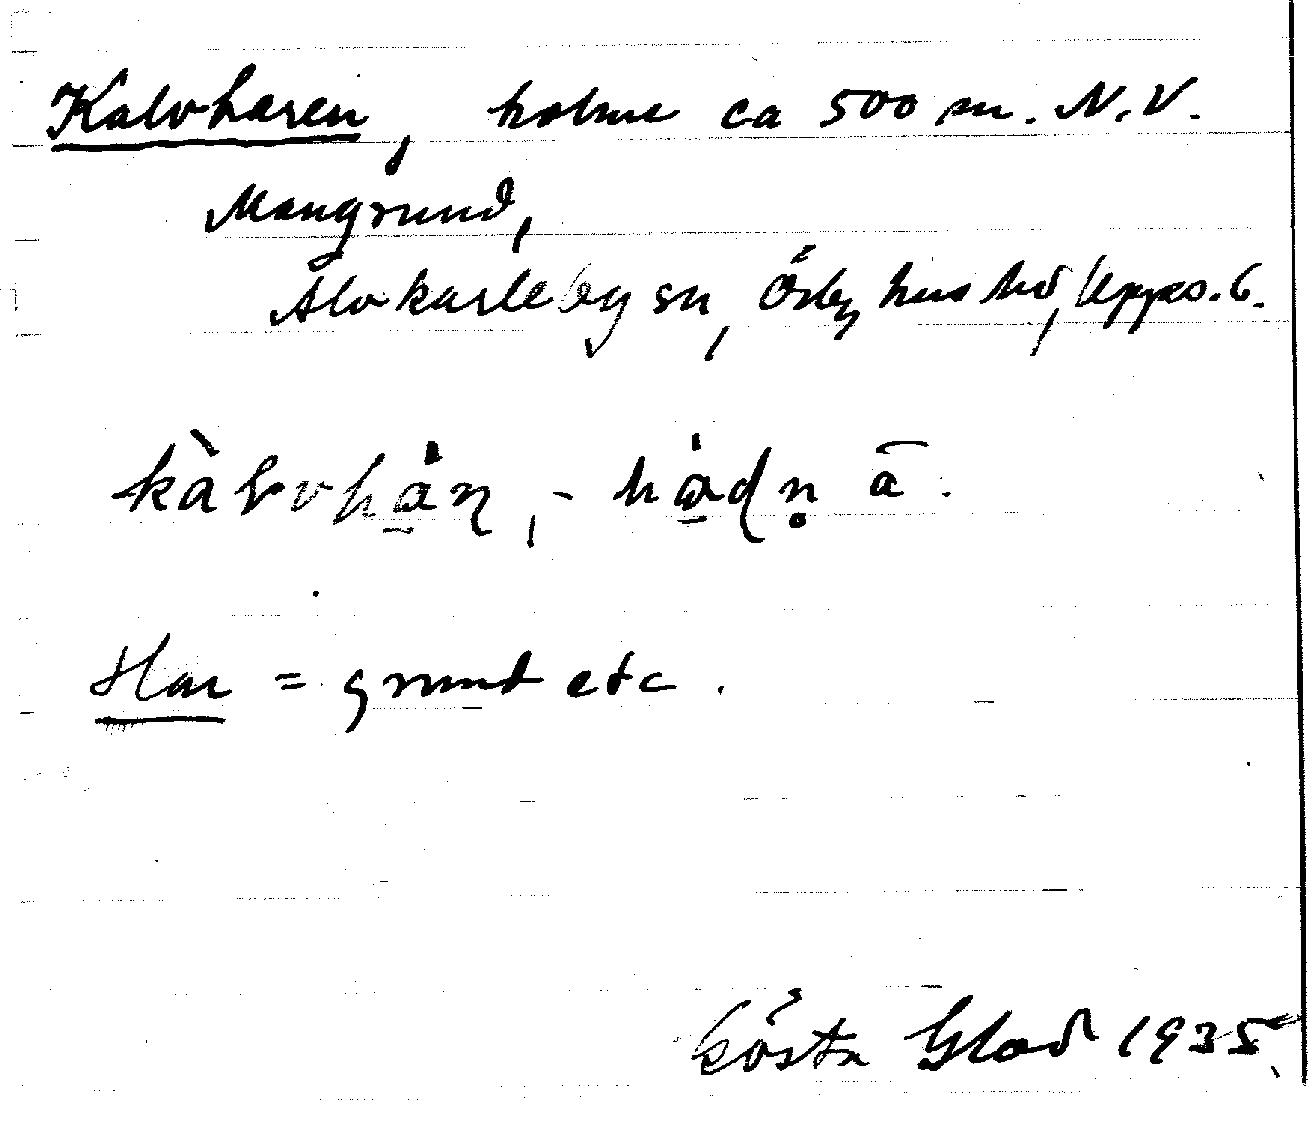 Kalvharen, holme ca 500 m. N.V.
Mangrund,
Älvkarleby sn, Örbyhus hd, Upps. l.
kàlvhàn, - hàdn ā.
Har = grund etc.
Gösta Glad 1935